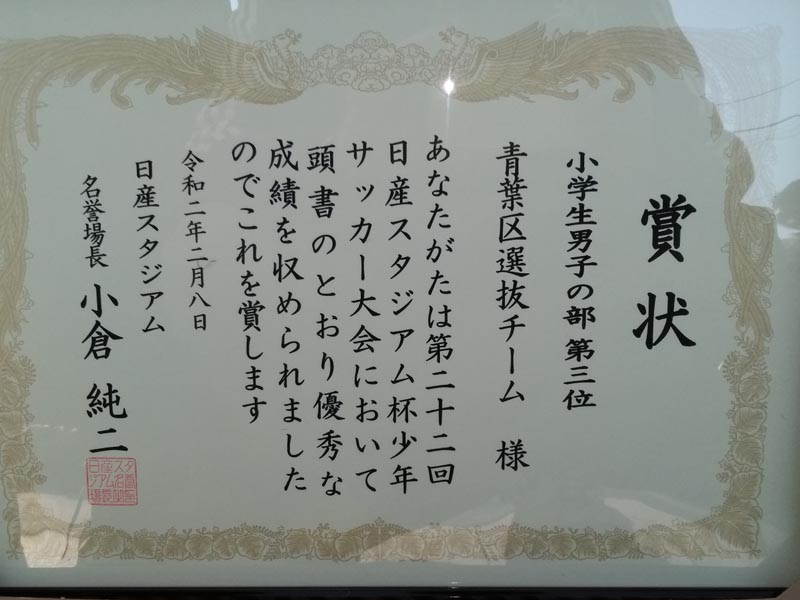 賞状
小学生男子の部 第三位
青葉区選抜チーム 様
あなたがたは第二十二回
日産スタジアム杯少年
サッカー大会において
頭書のとおり優秀な
成績を収められました
のでこれを賞します
令和二年二月八日
日産スタジアム
名誉場長 小倉 純二